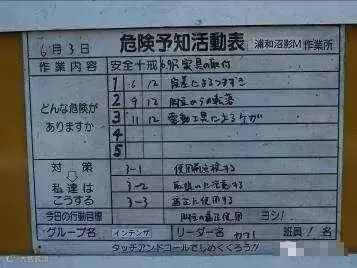 6月3日 危険予知活動表 浦和沼影M作業所
作業内容 安全十戒 家具の取付
どんな危険がありますか
1 6 12 段差によるつまずき
2 9 12 脚立からの転落
3 11 12 電動工具によるケガ
4
5
対策 3-1 使用前点検する
私達は 3-2 足場に注意する
こうする 3-3 適正に使用する
今日の行動目標 脚立の適正使用 ヨシ!
グループ名 インテンザ リーダー名 班員 1名
タッチアンドコールでしめくくろう!!